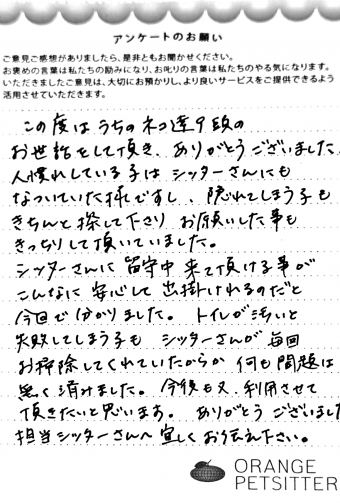 アンケートのお願い
ご意見ご感想がありましたら、是非ともお聞かせください。
お褒めの言葉は私たちの励みになり、お叱りの言葉は私たちのやる気になります。
いただきましたご意見は、大切にお預かりし、より良いサービスをご提供できるよう
活用させていただきます。
この度はうちのネコ達9頭の
お世話をして頂き、ありがとうございました
人慣れしている子はシッターさんにも
なついていた様ですし、隠れてしまう子も
きちんと探して下さり お願いした事も
きっちりして頂いていました。
シッターさんに留守中来て頂ける事が
こんなに安心して出掛けれるのだと
今回で分かりました。トイレが汚いと
失敗してしまう子もシッターさんが毎回
お掃除してくれていたからか何も問題は
無く済みました。今後も又、利用させて
頂きたいと思います。ありがとうございました
担当シッターさんへ宜しくお伝え下さい。
ORANGE
PETSITTER